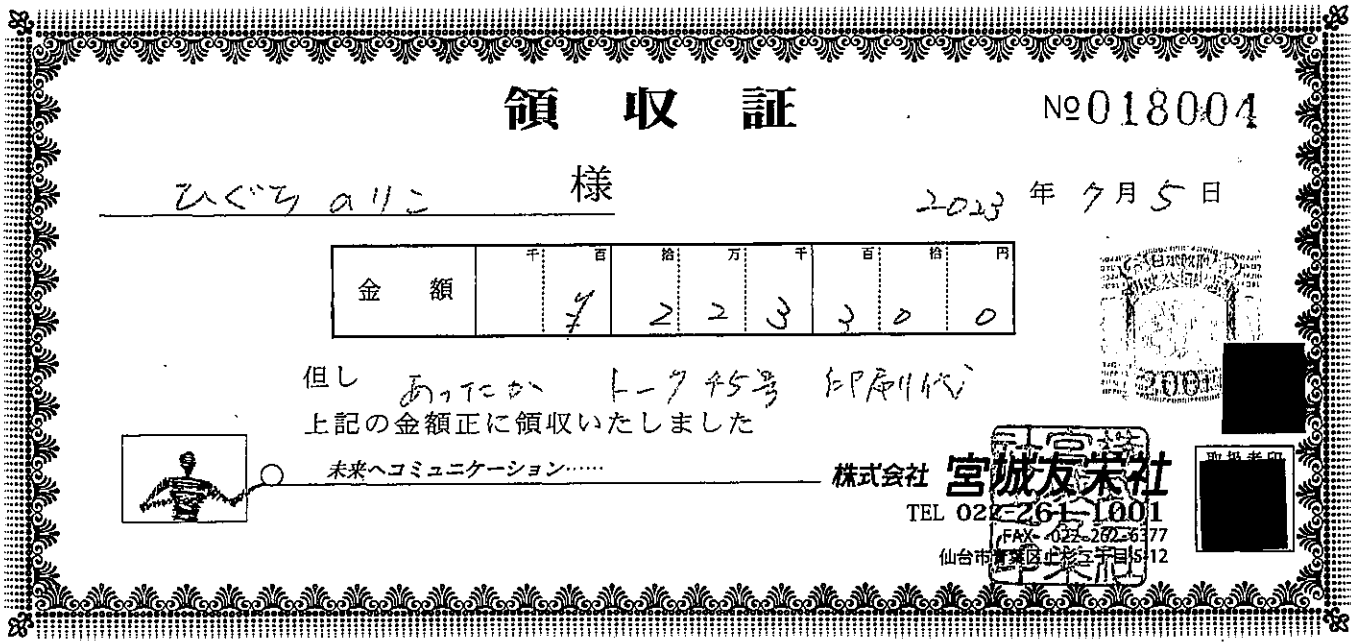 領収証
№018004
ひぐちのりこ 様
2023 年 7月 5日
金額 千 百 拾 万 千 百 拾 円
¥ 2 2 3 3 0 0
但し あったか トーク 45号 印刷代
上記の金額正に領収いたしました
日本政府
200
未来へコミュニケーション……
株式会社 宮城友栄社
取扱者印
TEL 022-261-1001
FAX 022-262-6377
仙台市青葉区上杉三丁目5-12